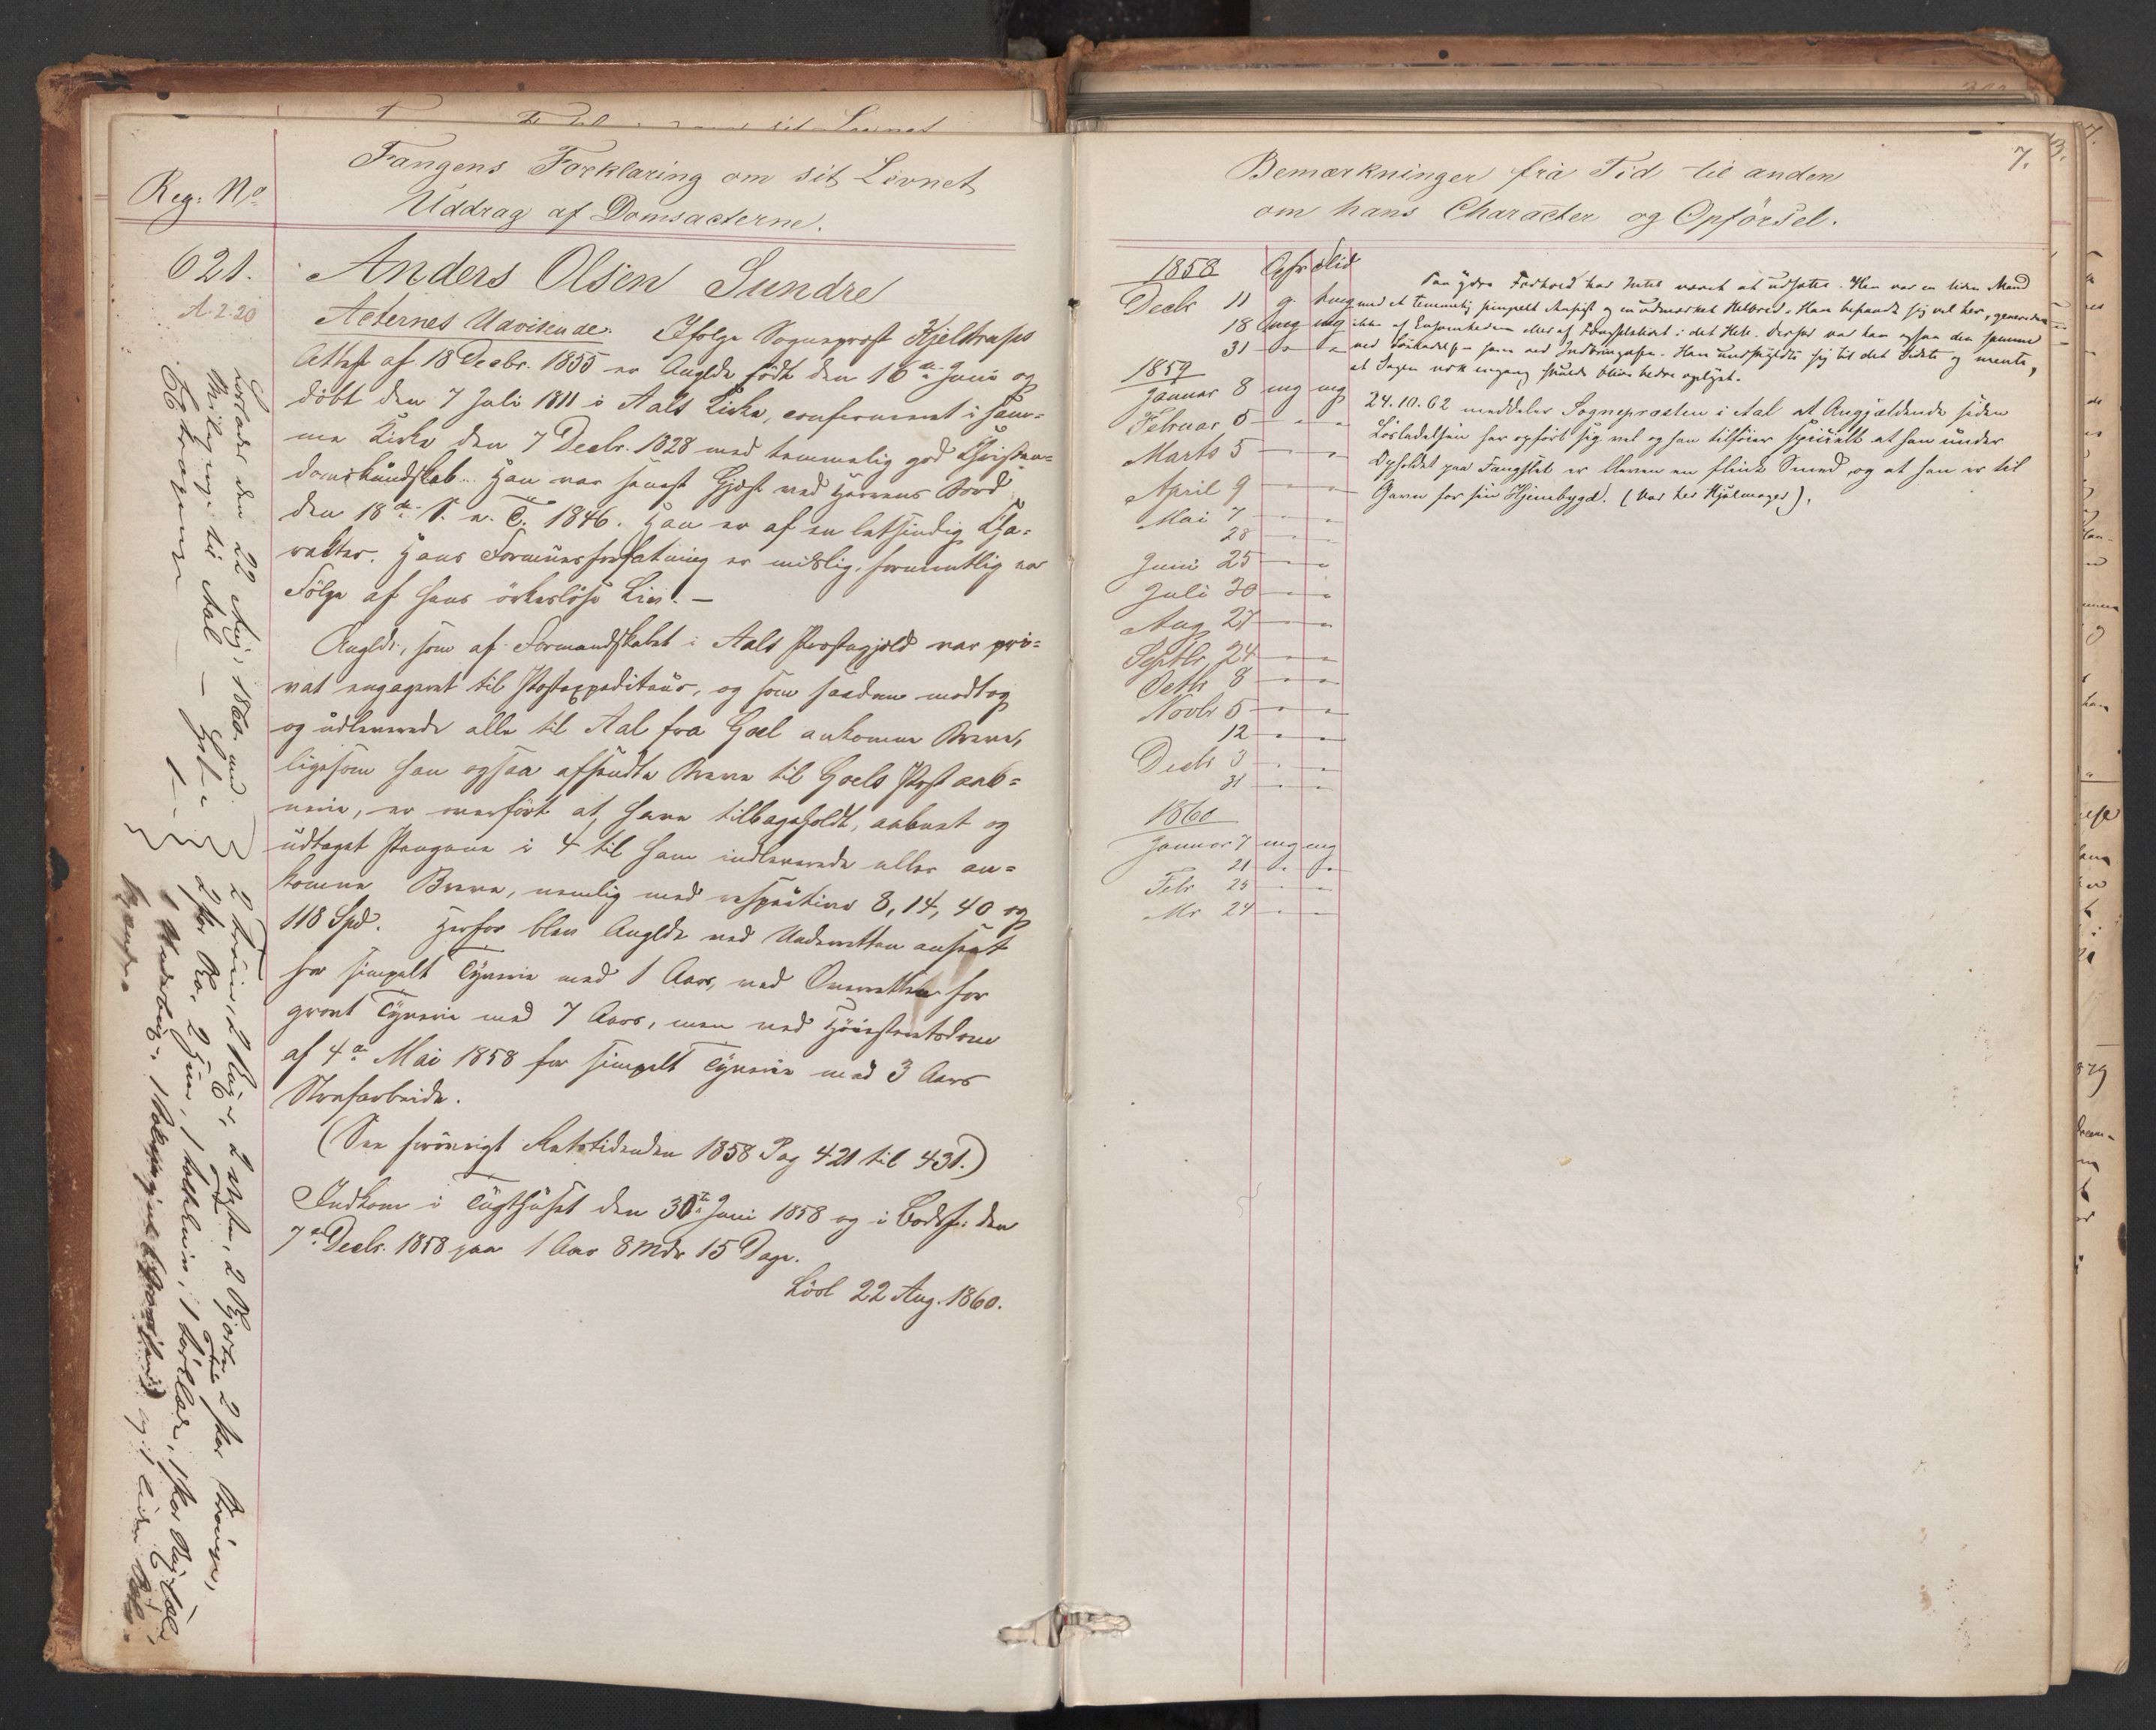 Reg: No
Fangens Forklaring om sit Levnet
Uddrag af Domsacterne.
621.
A.2.20
Anders Olsen Sundre
Acternes Udvisende. Ifølge Sognepræst Kjelstrups
Attest af 18 Decbr. 1855 er Anglde født den 16de Juni og
döbt den 7 Juli 1811 i Aals Kirke, confirmeret i sam-
me Kirke den 7 Decbr. 1828 med temmelig god Christen-
domskundskab. Han var senest Gjæst ved Herrens Bord
den 18de S. e. T. 1846. Han er af en letsindig Cha-
rakter. Hans Formuesforfatning er mislig, formentlig en
Følge af hans örkeslöse Liv. —
Anglde, som af Formandskabet i Aals Præstegjeld var pri-
vat engageret til Postexpediteur, og som saadan modtog
og udleverede alle til Aal fra Goel ankomne Breve,
ligesom han ogsaa afsendte Breve til Goels Postaab-
neri, er overført at have tilbageholdt, aabnet og
udtaget Pengene i 4 til ham indleverede eller an-
komne Breve, nemlig med respective 8, 14, 40 og
118 Spd. Herfor blev Anglde ved Underretten anseet
for simpelt Tyverie med 1 Aars, ved Overretten for
grovt Tyverie med 7 Aars, men ved Höiesteretsdom
af 4de Mai 1858 for simpelt Tyverie med 3 Aars
Strafarbeide.
(See forövrigt Retstidenden 1858 Pag 421 til 431.)
Indkom i Tugthuset den 30te Juni 1858 og i Bodsf: den
7de Decbr. 1858 paa 1 Aar 8 Mdr 15 Dage.
Lösl 22 Aug. 1860.
Löslades den 22 Aug: 1860 med
til Aal —
2 Tröier, 2 2 Veste, 2 Skjorter, 2 Par Strömper,
2 Par Sko, 2 Huer, 1
og 1 liden
Bemærkninger fra Tid til anden
om hans Character og Opförsel.
7.
1858 Opfr Flid
Decbr 11 g. tmg
18 mg mg
31 " "
1859
Januar 8 mg mg
Februar 5 " "
Marts 5 " "
April 9 " "
Mai 7 " "
28 " "
Juni 25 " "
Juli 30 " "
Aug 27 " "
Septbr 24 " "
Octbr 8 " "
Novbr 5 " "
12 " "
Decbr 3 " "
31 " "
1860
Januar 7 mg mg
21 " "
Febr 25 " "
Mr 24 " "
Paa ydre Forhold har Intet været at udsætte. Han var en liden Mand
med et temmelig simpelt Ansigt og en udmærket Helbred. Han befandt sig vel her, generedes
ikke af Ensomheden eller af Fængslslivet i det Hele. Derfor var han ogsaa den samme
ved Lösladelsen som ved Indbringelsen. Han undskyldte sig til det Sidste og mente,
at Sagen nok engang skulde blive bedre oplyst.
24.10.62 meddeler Sognepræsten i Aal at Angjældende siden
Lösladelsen har opfört sig vel og han tilföier specielt at han under
Opholdet paa Fængslet er bleven en flink Smed og at han er til
Gavn for sin Hjembygd. (Var her Hjulmager).